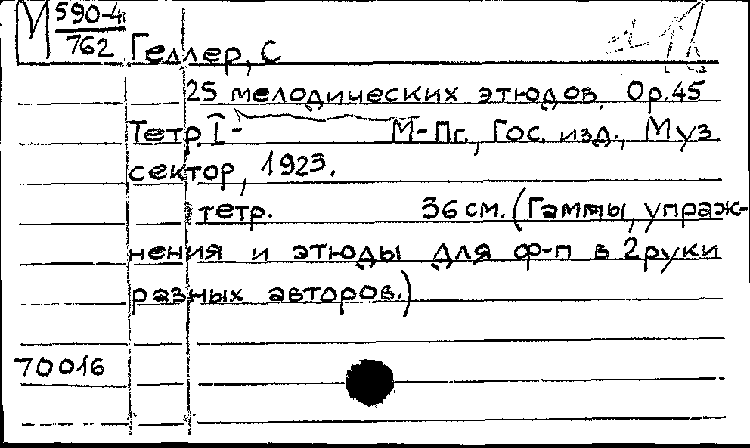 М 590-4
762
Геллер, С
25 мелодических этюдов. Op.45
Тетр. I- М-Пг., Гос. изд., Муз
сектор, 1923.
тетр. 36 см. (Гаммы, упраж-
нения и этюды для ф-п в 2 руки
разных авторов.)
70016